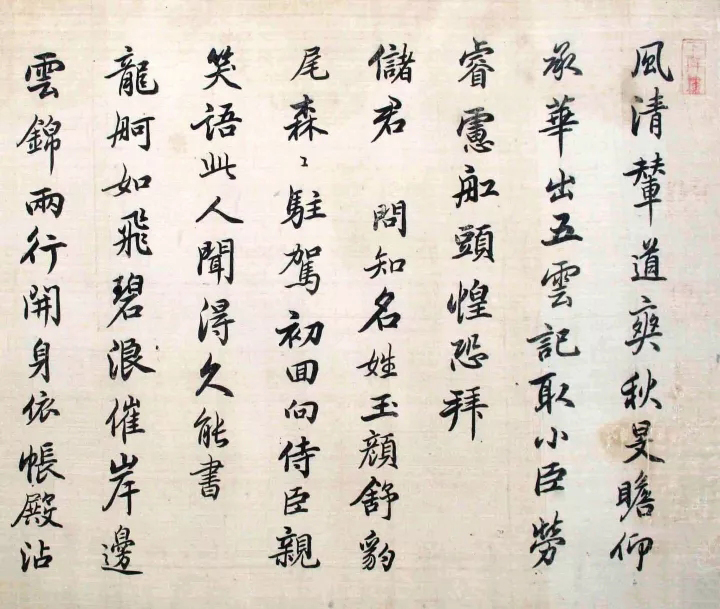 風清輦道爽秋旻瞻仰
承華出五雲記取小臣勞
睿慮舡頭惶恐拜
儲君　問知名姓玉顏舒豹
尾森〻駐駕初回向侍臣親
笑語此人聞得久能書
龍舸如飛碧浪催岸邊
雲錦兩行開身依帳殿沾